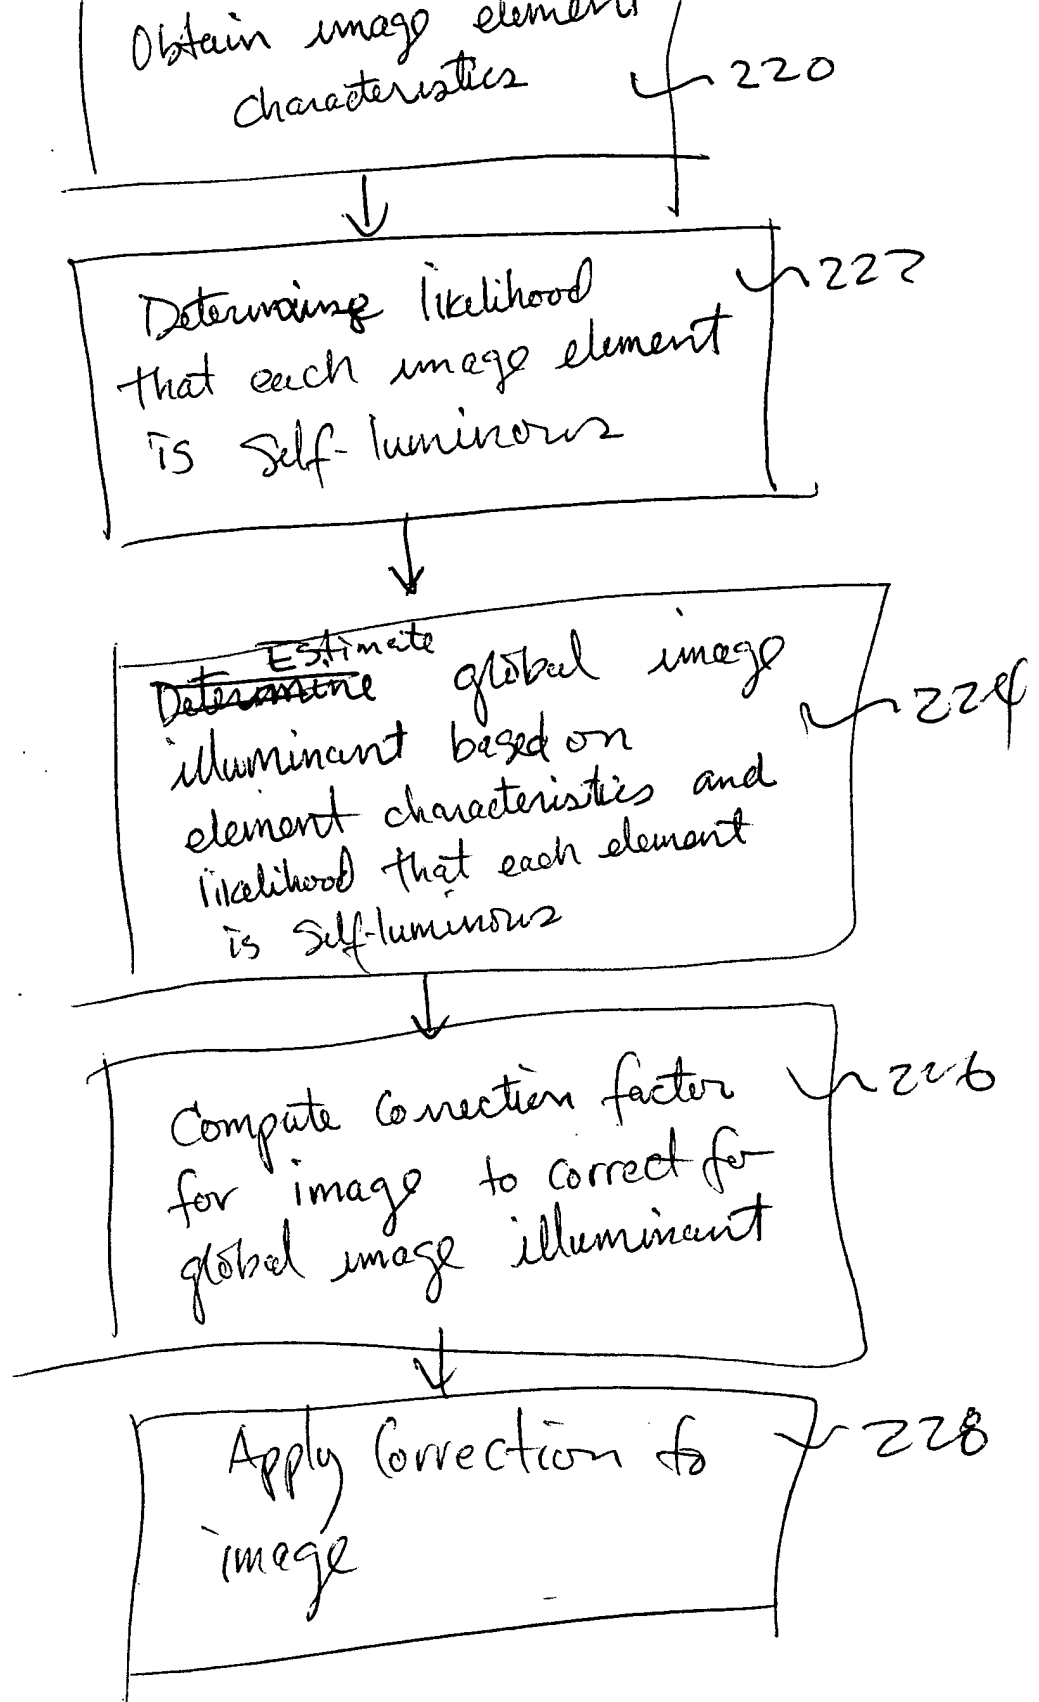 Obtain image element
characteristics
220
Determine likelihood
222
that each image element
is self-luminous
Estimate
Determine global image
224
illuminant based on
element characteristics and
likelihood that each element
is self-luminous
Compute correction factor
226
for image to correct for
global image illuminant
Apply correction to
228
image